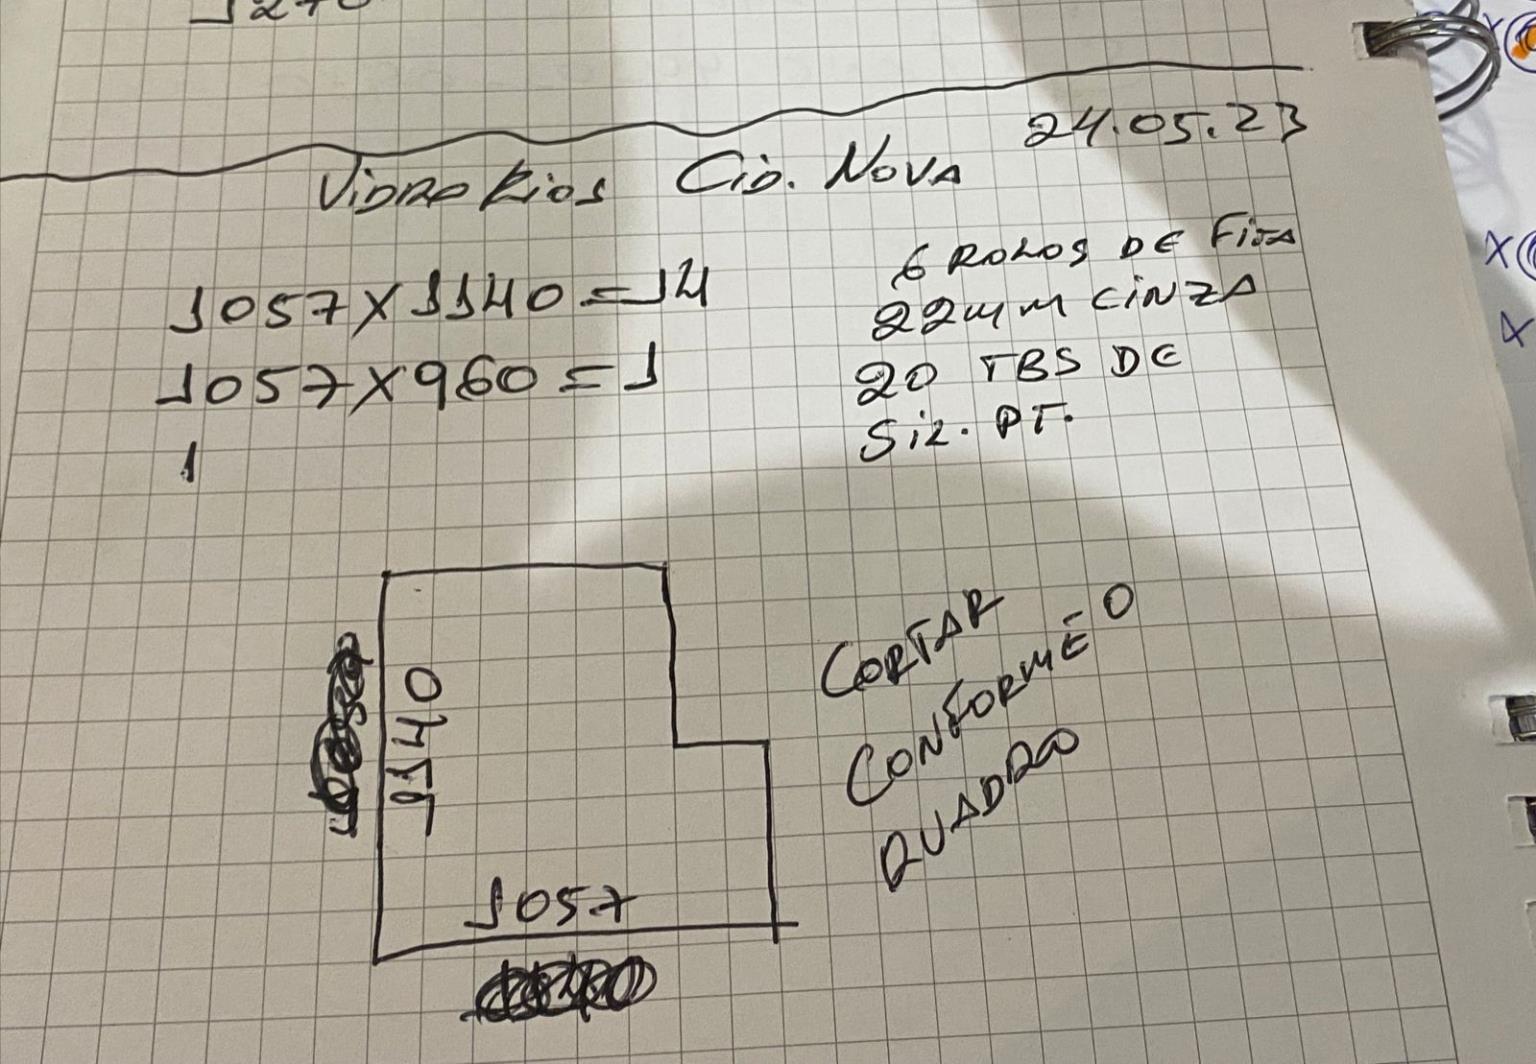 24.05.23
VIDRO RIOS CID. NOVA
1057X1140=14
1057X960=1
1
6 ROLOS DE FITA
22MM CINZA
20 TBS DE
SIL. PT.
1140
1057
CORTAR
CONFORME O
QUADRO